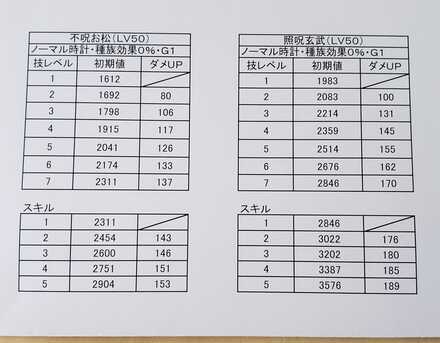 不呪お松(LV50)
ノーマル時計・種族効果0%・G1
技レベル 初期値 ダメUP
1 1612
2 1692 80
3 1798 106
4 1915 117
5 2041 126
6 2174 133
7 2311 137
スキル
1 2311
2 2454 143
3 2600 146
4 2751 151
5 2904 153
照呪玄武(LV50)
ノーマル時計・種族効果0%・G1
技レベル 初期値 ダメUP
1 1983
2 2083 100
3 2214 131
4 2359 145
5 2514 155
6 2676 162
7 2846 170
スキル
1 2846
2 3022 176
3 3202 180
4 3387 185
5 3576 189